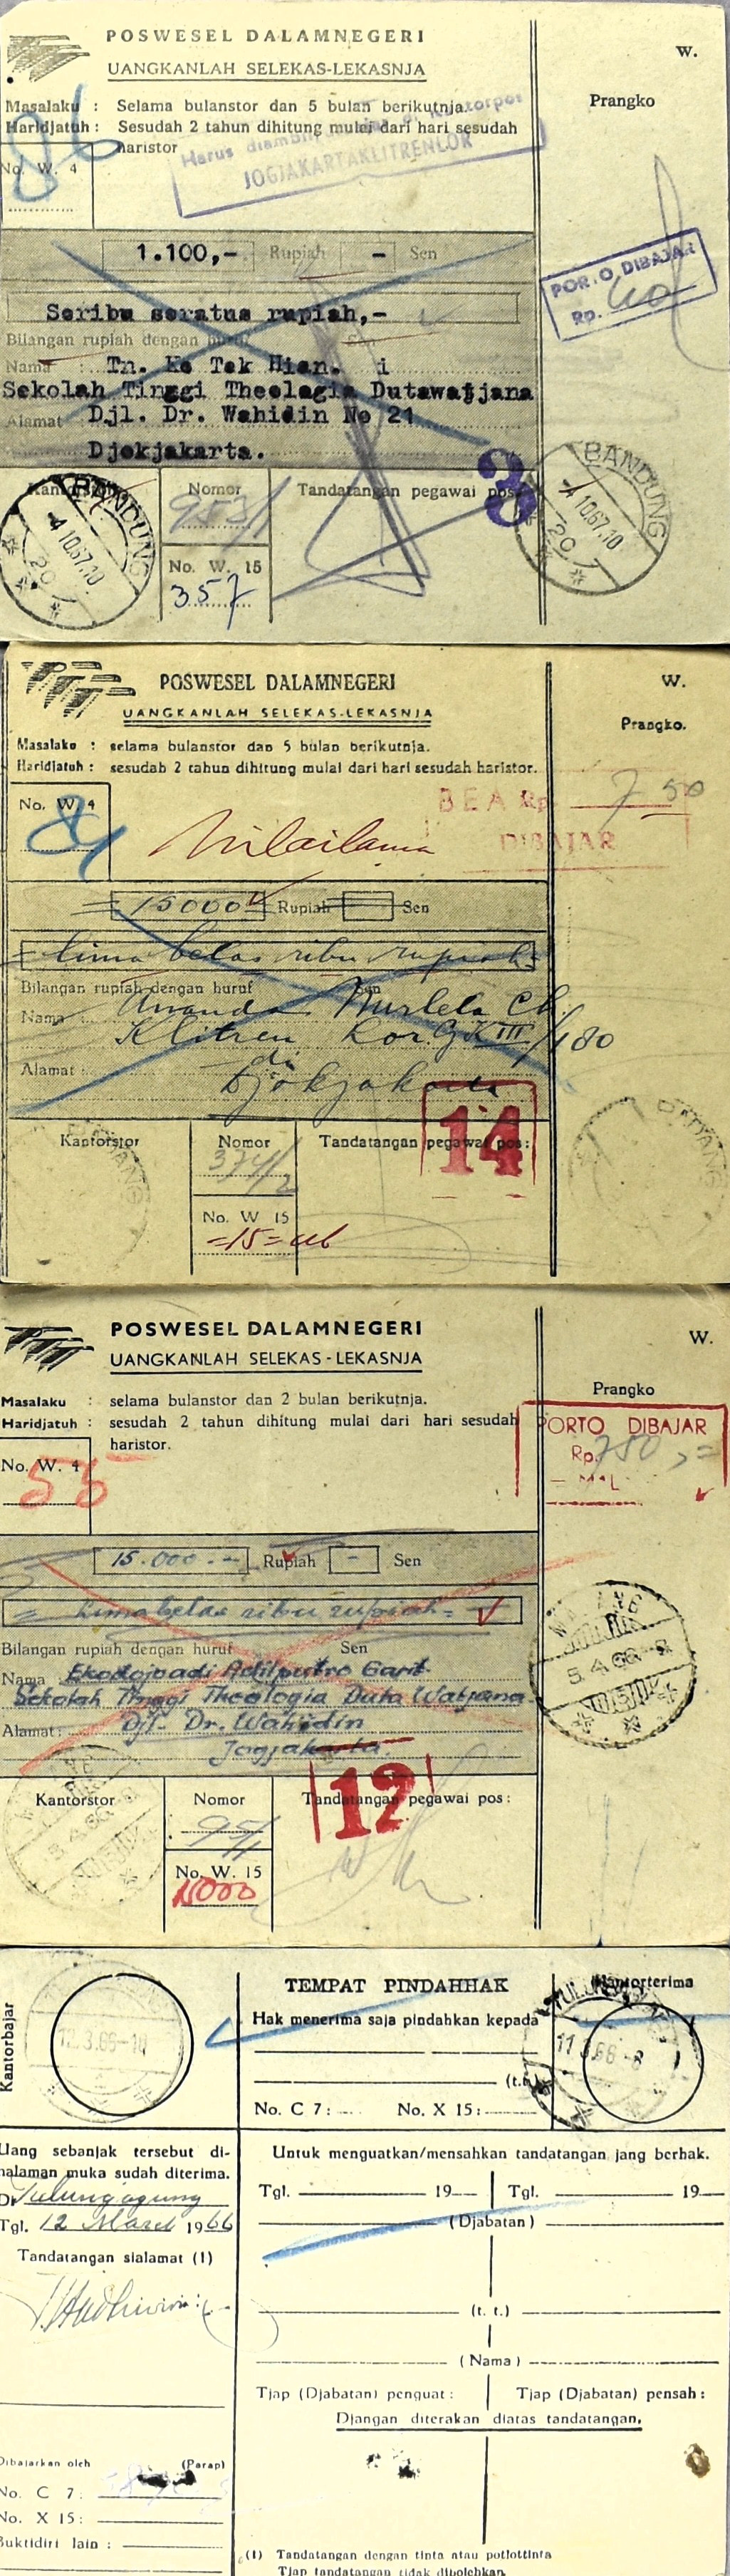 POSWESEL DALAMNEGERI
UANGKANLAH SELEKAS-LEKASNJA
W.
Prangko
Masalaku : Selama bulanstor dan 5 bulan berikutnja.
Haridjatuh : Sesudah 2 tahun dihitung mulai dari hari sesudah haristor
Harus diambil Kantorpos
JOGJAKARTAKLITRENLOR
86
No. W. 4
1.100,- Rupiah - Sen
PORTO DIBAJAR
Rp.
Seribu seratus rupiah,-
Bilangan rupiah dengan huruf Sen
Nama : Tn. Ke Tek Hian. i
Sekolah Tinggi Theologia Dutawatjana
Alamat : Djl. Dr. Wahidin No 21
Djokjakarta.
Nomor
Tandatangan pegawai pos
3
BANDUNG
-4 10.67.10
20
BANDUNG
-4 10.67.10
20
No. W. 15
357
POSWESEL DALAMNEGERI
UANGKANLAH SELEKAS-LEKASNJA
W.
Prangko.
Masalaku : selama bulanstor dan 5 bulan berikutnja.
Haridjatuh : sesudah 2 tahun dihitung mulai dari hari sesudah haristor.
No. W. 4
BEA Rp. 7 50
DIBAJAR
Nilailama
= 15000 Rupiah Sen
= lima belas ribu rupiah =
Bilangan rupiah dengan huruf Sen
Nama : Ananda Nurlela Ch
Klitren Lor GK III/180
Alamat : di
Djokjakarta
14
Kantorstor
Nomor
374/2
Tandatangan pegawai pos:
PADANG
PADANG
No. W 15
=15=
POSWESEL DALAMNEGERI
UANGKANLAH SELEKAS-LEKASNJA
W.
Prangko
Masalaku : selama bulanstor dan 2 bulan berikutnja.
Haridjatuh : sesudah 2 tahun dihitung mulai dari hari sesudah haristor.
PORTO DIBAJAR
Rp. 750,=
No. W. 4
55
15.000.- Rupiah - Sen
= Lima belas ribu rupiah =
Bilangan rupiah dengan huruf Sen
Nama : Ekodojoadi Adilputro Garit
Sekolah Tinggi Theologia Duta Watjana
Alamat : Djl. Dr. Wahidin
Jogjakarta.
MALANG
5.4.66-8
12
Kantorstor
Nomor
95/1
Tandatangan pegawai pos:
5.4.66
No. W. 15
Kantorbajar
12.3.66-10
TEMPAT PINDAHHAK
Hak menerima saja pindahkan kepada
(t.t.)
No. C 7: No. X 15:
Kantorterima
11 3.66 -8
Uang sebanjak tersebut di-
halaman muka sudah diterima.
Di Tulungagung
Tgl. 12 Maret 1966
Tandatangan sialamat (1)
Untuk menguatkan/mensahkan tandatangan jang berhak.
Tgl. 19 Tgl. 19
(Djabatan)
(t. t.)
(Nama)
Tjap (Djabatan) penguat : Tjap (Djabatan) pensah :
Djangan diterakan diatas tandatangan.
Dibajarkan oleh (Parap)
No. C 7:
No. X 15:
Buktidiri lain :
(1) Tandatangan dengan tinta atau potlottinta
Tjap tandatangan tidak dibolehkan.